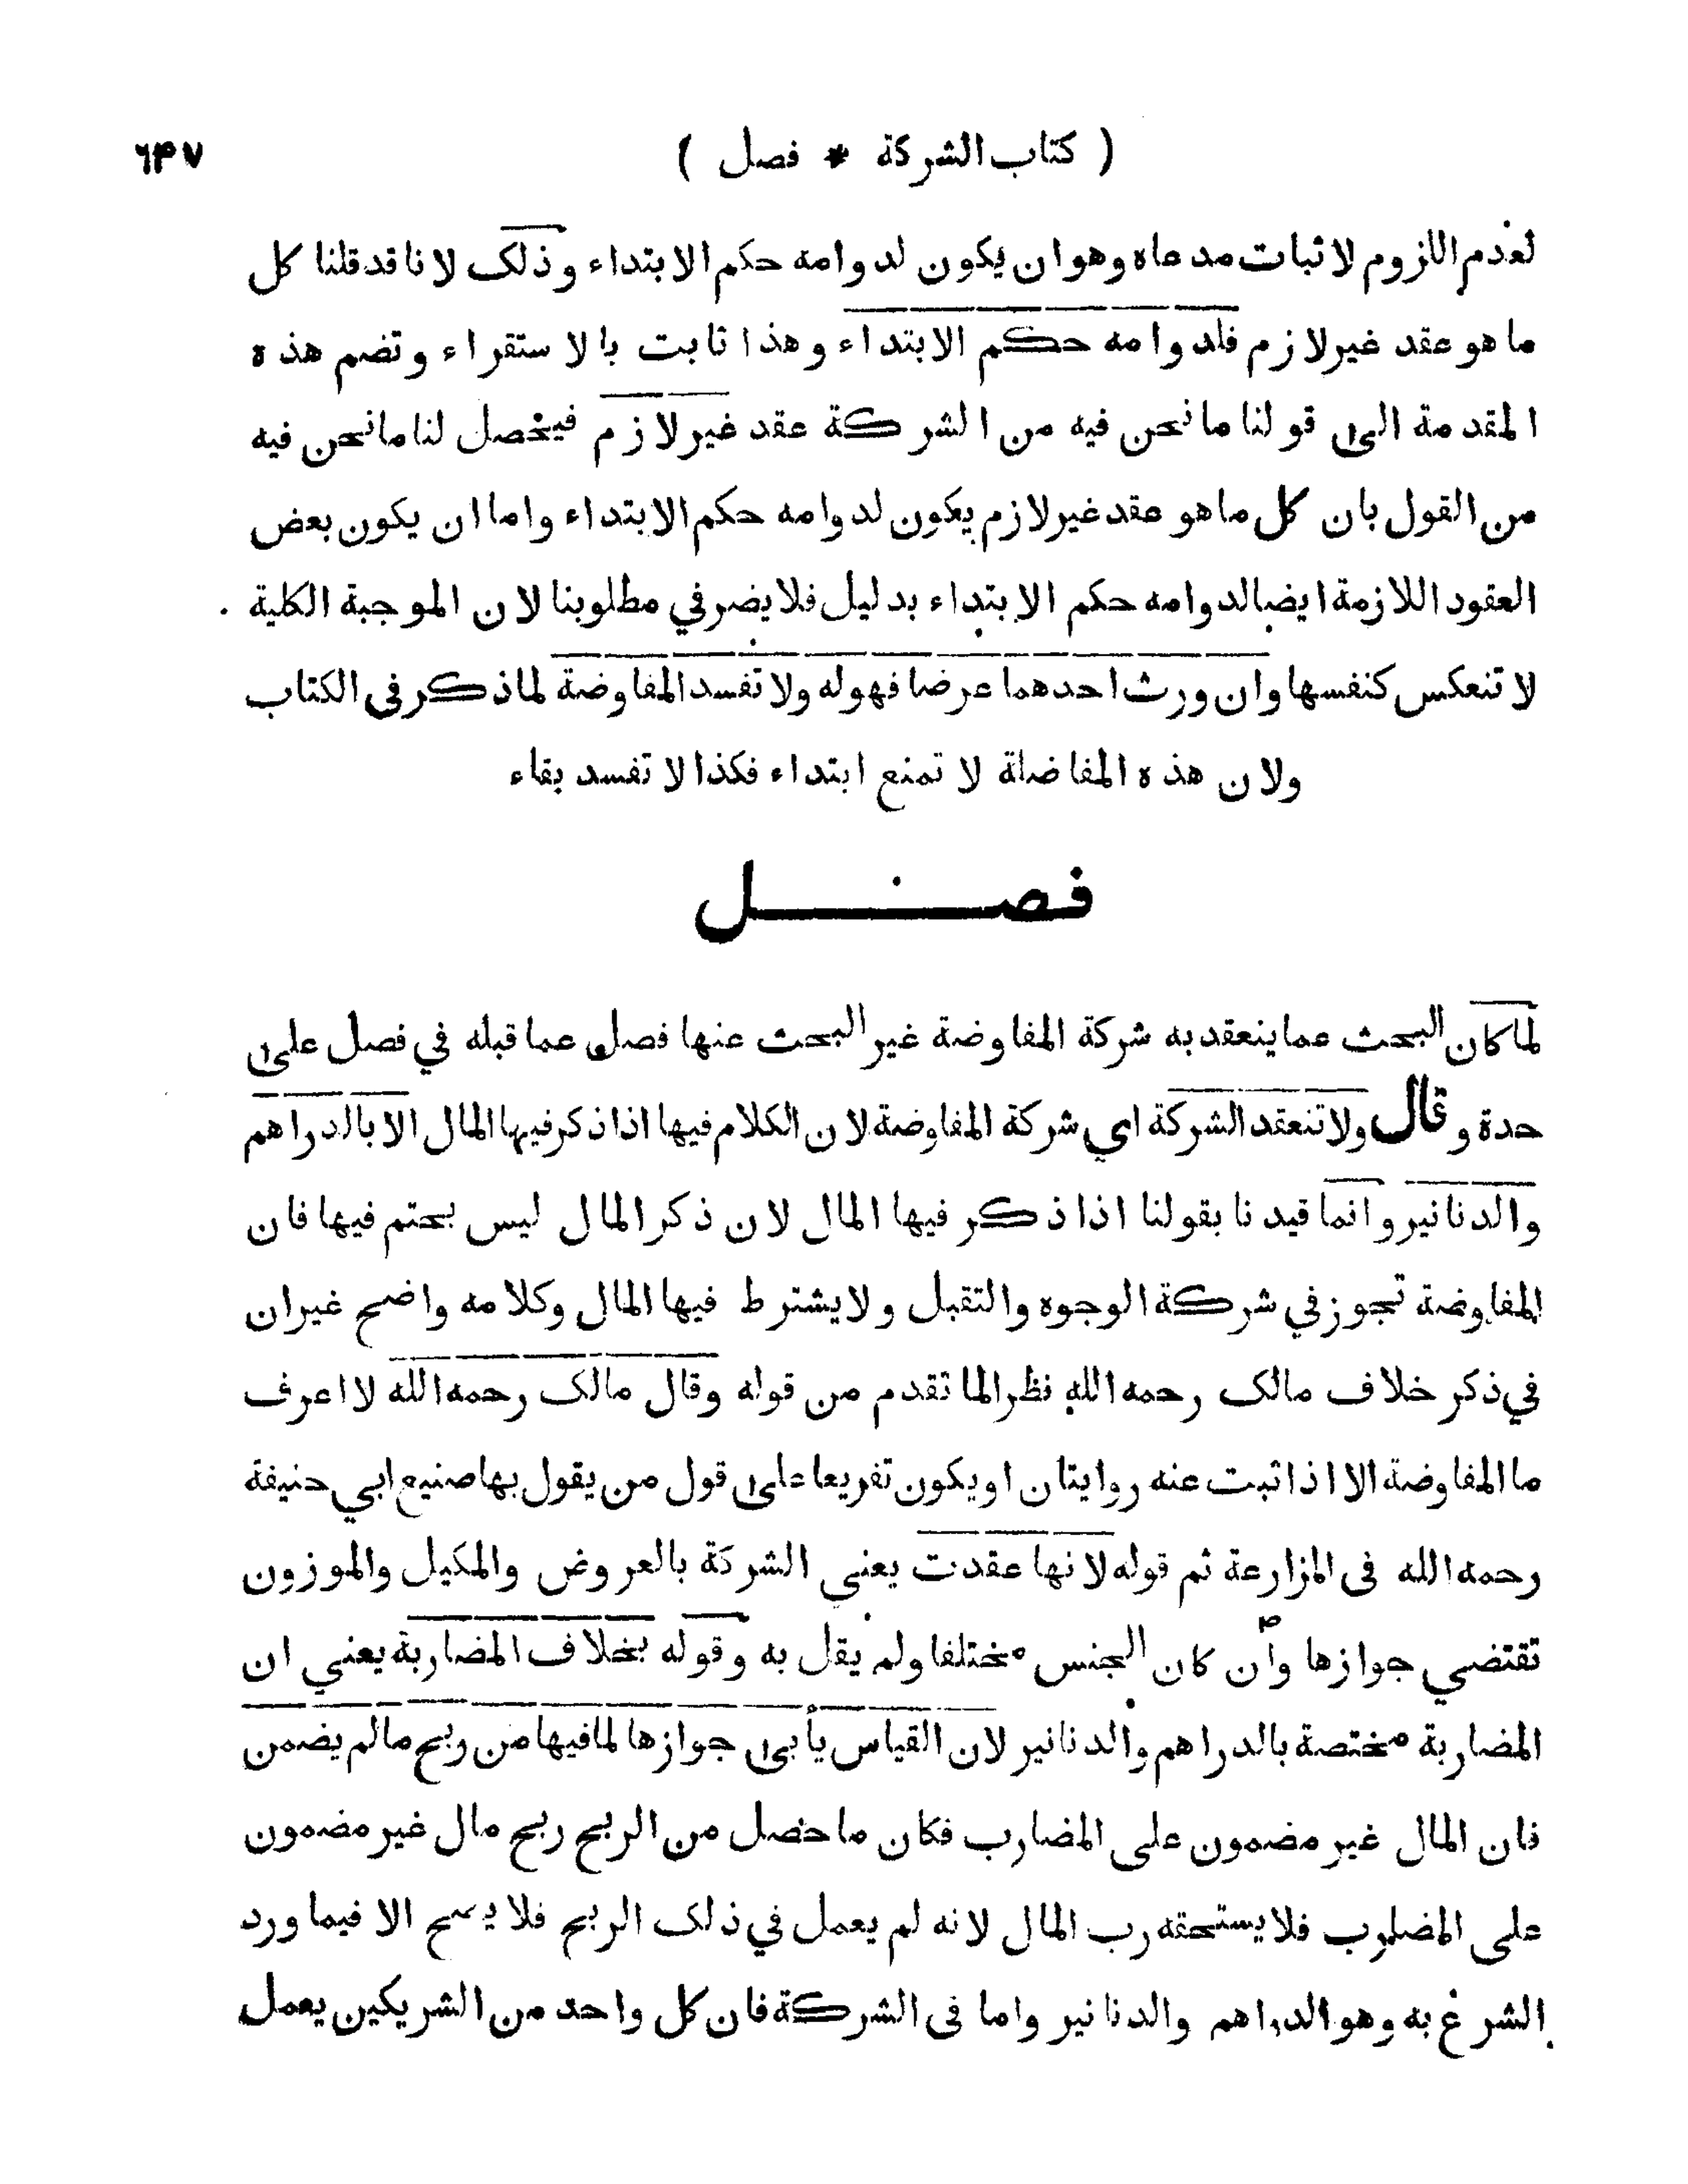 ( كتاب الشركة * فصل ) ٦۴٧
لعدم اللزوم لاثبات مدعاه وهوان يكون لدوامه حكم الابتداء وذلك لاناقدقلنا كل
ماهو عقد غيرلازم فلدوامه حكم الابتداء وهذا ثابت بالاستقراء وتضم هذه
المقدمة الى قولنا مانحن فيه من الشركة عقد غيرلازم فيحصل لنامانحن فيه
من القول بان كل ماهو عقدغيرلازم يكون لدوامه حكم الابتداء واماان يكون بعض
العقود اللازمة ايضالدوامه حكم الابتداء بدليل فلايضرفي مطلوبنا لان الموجبة الكلية
لاتنعكس كنفسها وان ورث احدهما عرضا فهوله ولاتفسد المفاوضة لماذكرفى الكتاب
ولان هذه المفاضلة لا تمنع ابتداء فكذا لا تفسد بقاء
فصل
لماكان البحث عماينعقدبه شركة المفاوضة غيرالبحث عنها فصل عماقبله في فصل على
حدة وقال ولاتنعقد الشركة اي شركة المفاوضة لان الكلام فيها اذاذكرفيها المال الابالدراهم
والدنانير وانما قيدنا بقولنا اذا ذكر فيها المال لان ذكرالمال ليس بحتم فيها فان
المفاوضة تجوزفي شركة الوجوه والتقبل ولايشترط فيها المال وكلامه واضح غيران
في ذكر خلاف مالك رحمه الله نظرالما تقدم من قوله وقال مالك رحمه الله لااعرف
ما المفاوضة الا اذاثبت عنه روايتان اويكون تفريعا على قول من يقول بهاصنيع ابي حنيفة
رحمه الله فى المزارعة ثم قوله لانها عقدت يعنى الشركة بالعروض والمكيل والموزون
تقتضي جوازها وان كان الجنس مختلفا ولم يقل به وقوله بخلاف المضاربة يعني ان
المضاربة مختصة بالدراهم والدنانير لان القياس يأبى جوازها لمافيها من ربح مالم يضمن
فان المال غير مضمون على المضارب فكان ماحصل من الربح ربح مال غير مضمون
على المضارب فلايستحقه رب المال لانه لم يعمل في ذلك الربح فلا يصح الا فيما ورد
الشرع به وهوالدراهم والدنانير واما فى الشركة فان كل واحد من الشريكين يعمل